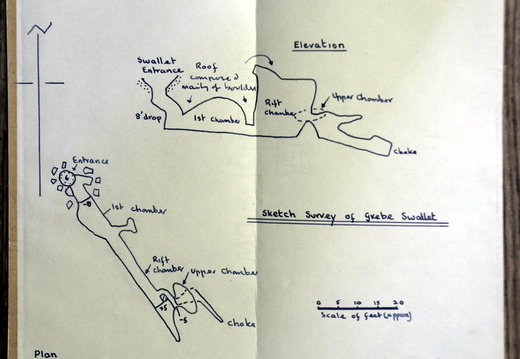 Elevation
Swallet
Entrance
Roof
composed
mainly of boulders
8' drop
1st Chamber
Rift
Chamber
Upper Chamber
choke
Entrance
6
-8
1st Chamber
Rift
Chamber
Upper Chamber
+5
-5
choke
Sketch Survey of Grebe Swallet
0 5 10 15 20
Scale of feet (approx)
Plan